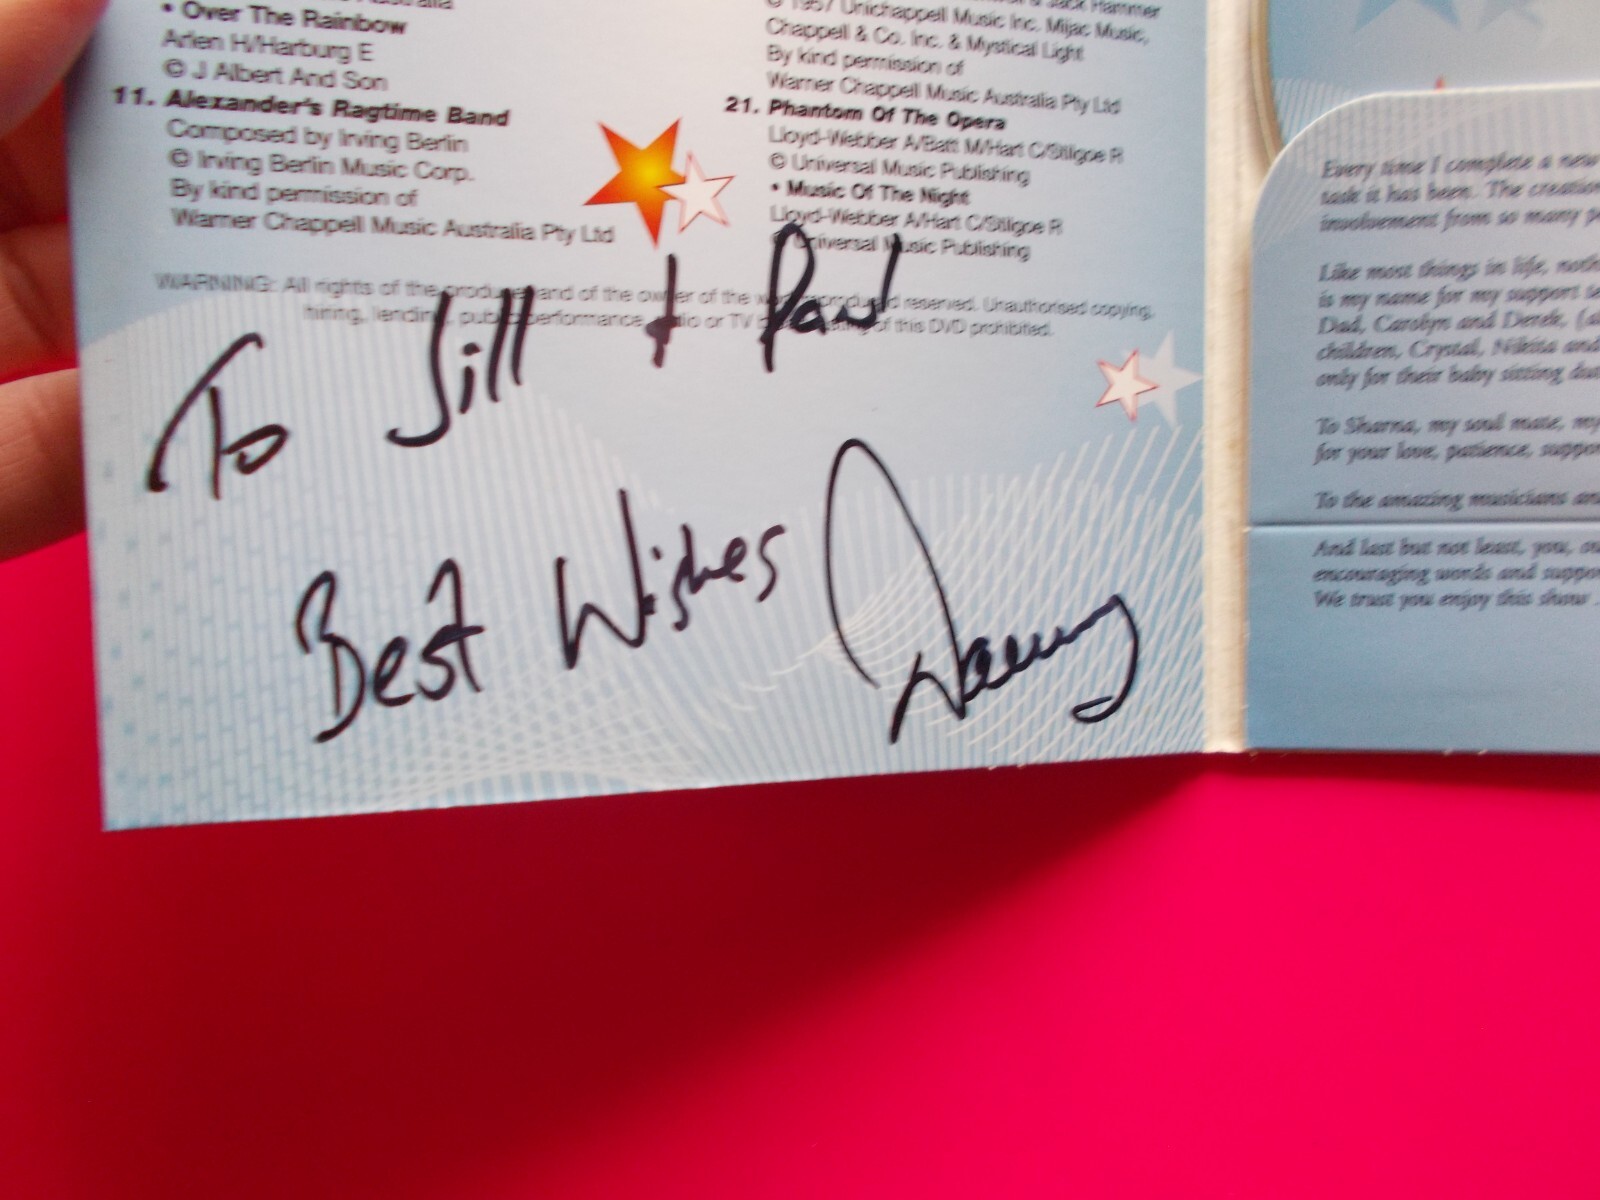 Australia
• Over The Rainbow
Arlen H/Harburg E
© J Albert And Son
11. Alexander's Ragtime Band
Composed by Irving Berlin
© Irving Berlin Music Corp.
By kind permission of
Warner Chappell Music Australia Pty Ltd
& Jack Hammer
© 1957 Unichappell Music Inc. Mijac Music,
Chappell & Co. Inc. & Mystical Light
By kind permission of
Warner Chappell Music Australia Pty Ltd
21. Phantom Of The Opera
Lloyd-Webber A/Batt M/Hart C/Stilgoe R
© Universal Music Publishing
• Music Of The Night
Lloyd-Webber A/Hart C/Stilgoe R
© Universal Music Publishing
WARNING: All rights of the producer and of the owner of the work reproduced reserved. Unauthorised copying,
hiring, lending, public performance, radio or TV broadcasting of this DVD prohibited.
To Jill + Paul
Best Wishes
Danny
Every time I complete a new
task it has been. The creation
involvement from so many
Like most things in life,
is my name for my support
Dad, Carolyn and Derek,
children, Crystal, Nikita and
only for their baby sitting
To Sharna, my soul mate, my
for your love, patience,
To the amazing musicians
And last but not least, you,
encouraging words and
We trust you enjoy this show